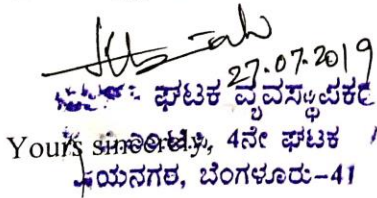 27.07.2019
ಘಟಕ ವ್ಯವಸ್ಥಾಪಕರ
Yours sincerely, 4ನೇ ಘಟಕ
ಜಯನಗರ, ಬೆಂಗಳೂರು-41